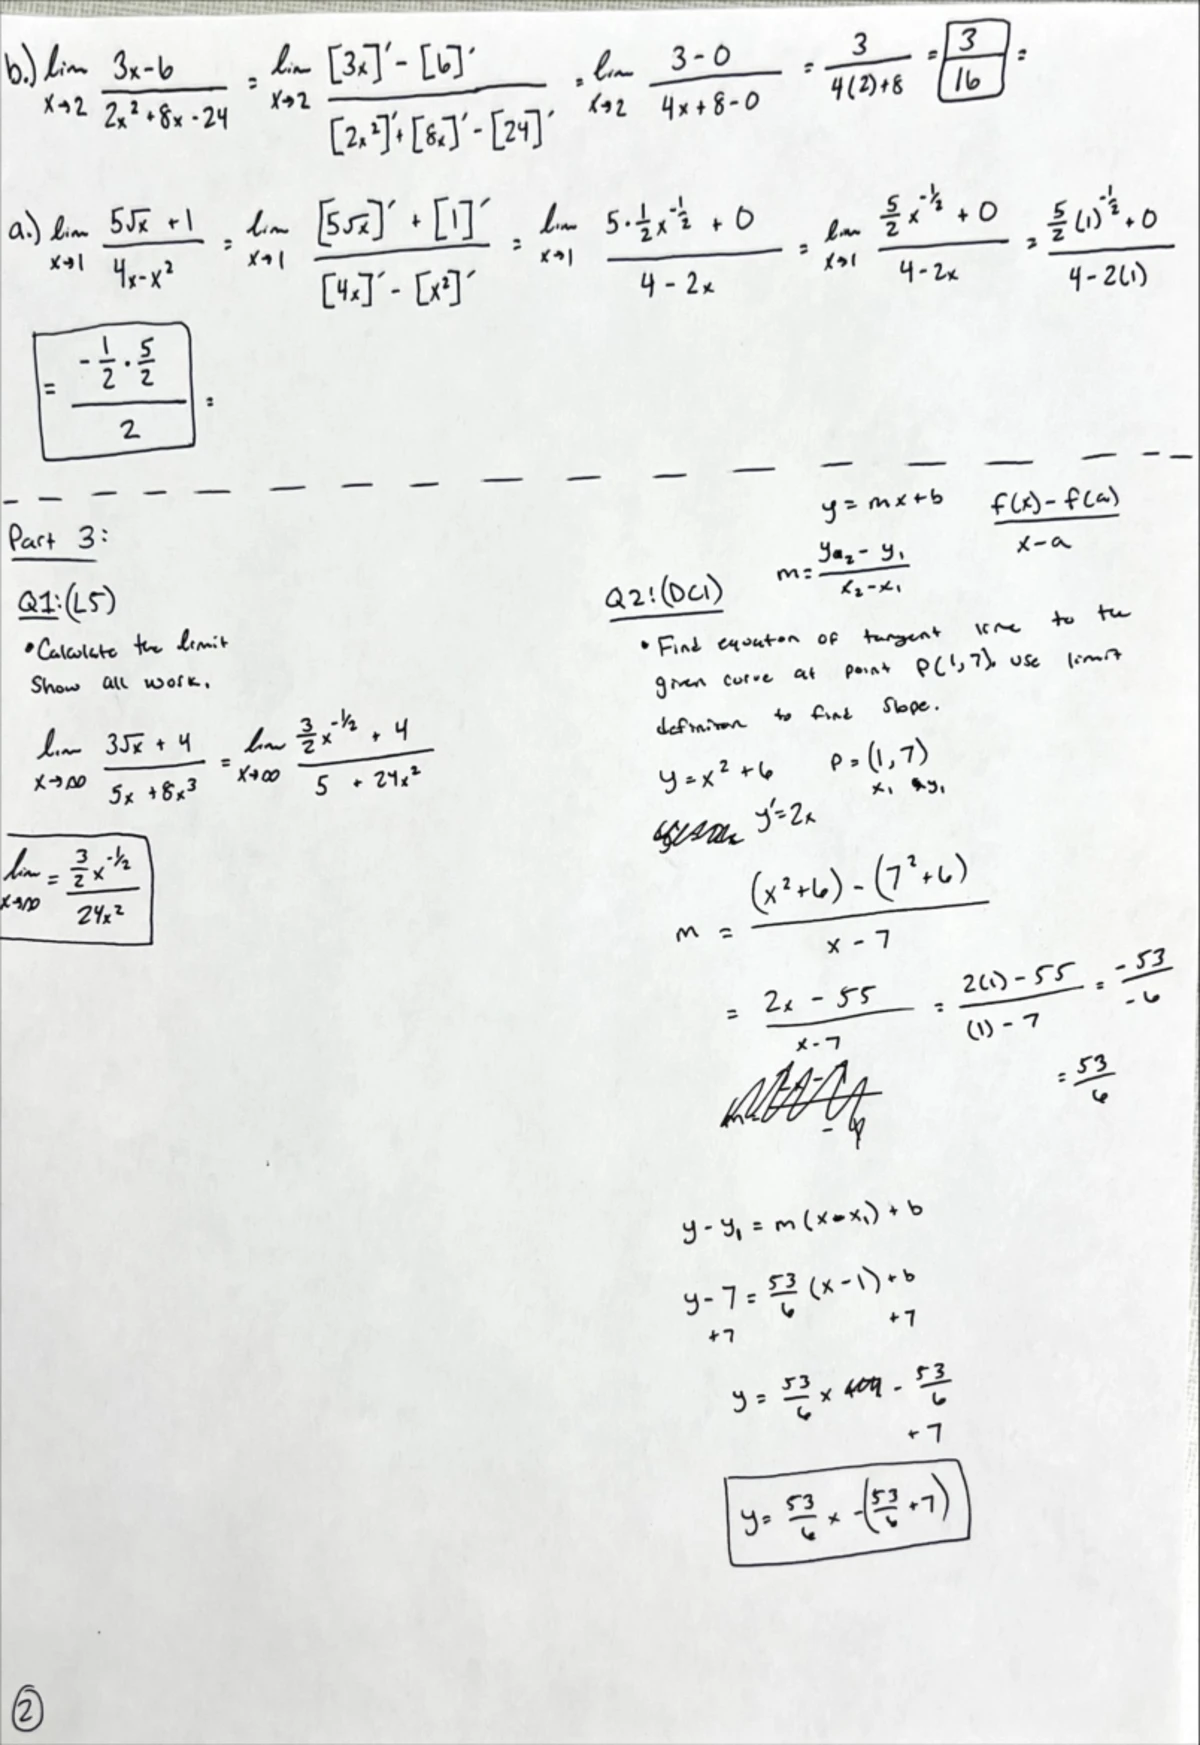 b.) lim x→2 (3x-6)/(2x²+8x-24) = lim x→2 ([3x]' - [6]')/([2x²]' + [8x]' - [24]') = lim x→2 (3-0)/(4x+8-0) = 3/(4(2)+8) = 3/16 =
a.) lim x→1 (5√x + 1)/(4x-x²) = lim x→1 ([5√x]' + [1]')/([4x]' - [x²]') = lim x→1 (5·1/2 x^(-1/2) + 0)/(4-2x) = lim x→1 (5/2 x^(-1/2) + 0)/(4-2x) = (5/2 (1)^(-1/2) + 0)/(4-2(1))
= (-1/2 · 5/2)/2 =
Part 3:
Q1:(L5)
• Calculate the limit
Show all work.
lim x→∞ (3√x + 4)/(5x + 8x³) = lim x→∞ (3/2 x^(-1/2) + 4)/(5 + 24x²)
lim x→∞ = (3/2 x^(-1/2))/(24x²)
y = mx+b (f(x) - f(a))/(x-a)
m = (y₂ - y₁)/(x₂-x₁)
Q2:(DC1)
• Find equaton of tangent line to the
given curve at point P(1,7). use limit
definiton to find slope.
y = x² + 6 P = (1, 7)
x₁ y₁
y' = 2x
m = ((x²+6) - (7²+6))/(x-7)
= (2x - 55)/(x-7) = (2(1) - 55)/((1) - 7) = -53/-6
= 53/6
y - y₁ = m(x-x₁) + b
y - 7 = 53/6 (x-1) + b
+7 +7
y = 53/6 x - 53/6
+ 7
y = 53/6 x -(53/6 + 7)
2